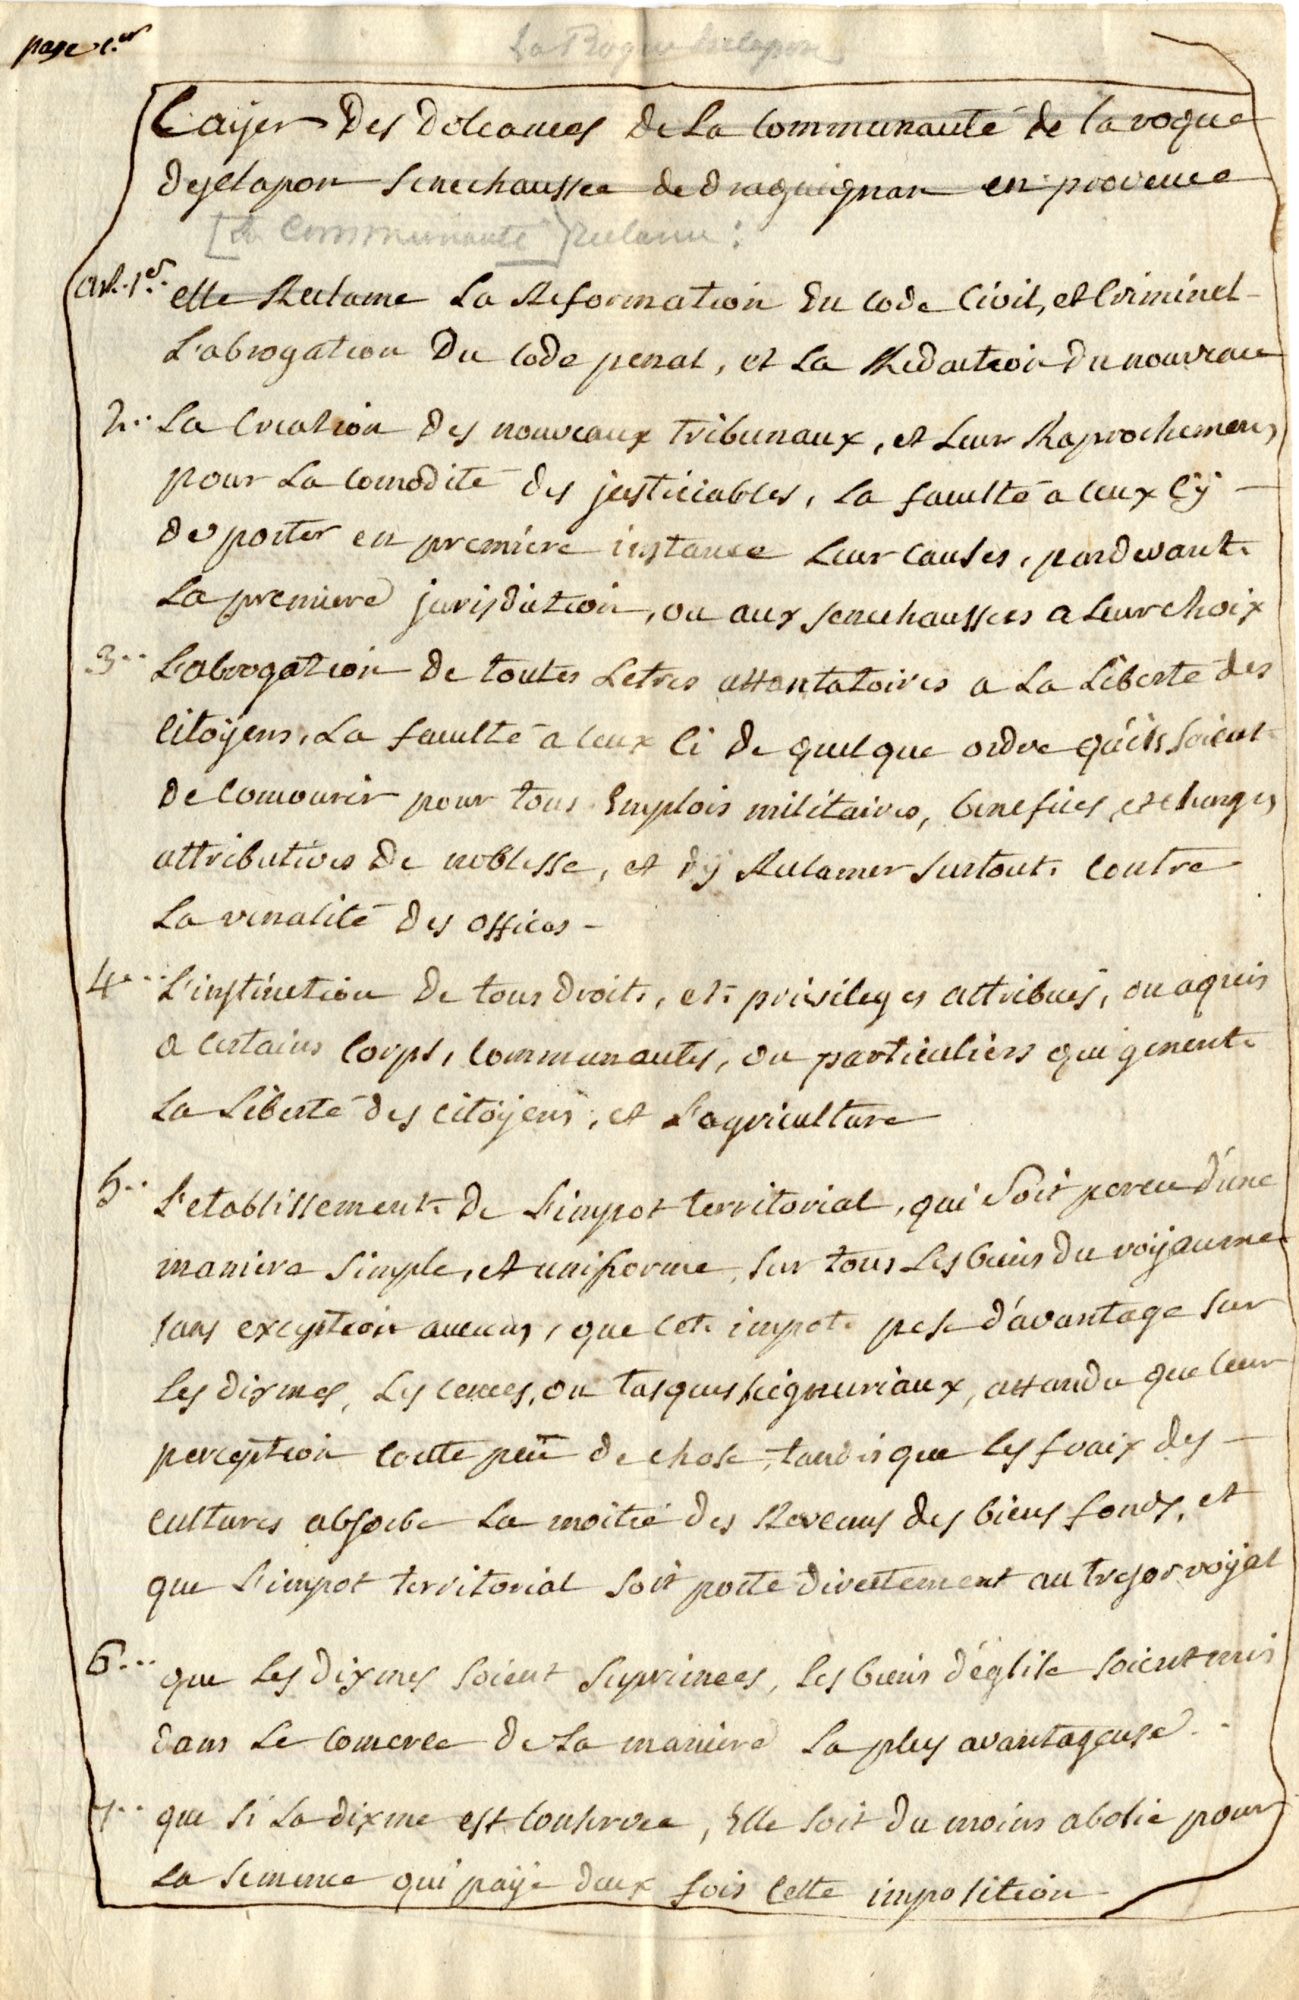 page 1.er
La Roque desclapon
Cayer Des doleances de La Communauté de La roque
desclapon Senechaussée de draguignan en provence
[La Communauté] Reclame :
art. 1er. elle Reclame La Reformation Du Code Civil, et Criminel
L'abrogation Du Code penal, et La Redaction du nouveau
2.. La Creation des nouveaux tribunaux, et Leur Raprochement,
pour La Comodité des justiciables, La faculté a Ceux Cÿ
de porter en premiere instance Leur Causes, pardevant
La premiere jurisdiction, ou aux Senechaussées a Leur choix
3.. L'abrogation de toutes Letres attantatoires a La Liberté des
Citoÿens, La faculté a Ceux Ci de quelque ordre qu'ils Soient
de Concourir pour tous Emplois militaires, benefices, et charges
attributives de noblesse, et d'ÿ Reclamer Surtout contre
La venalité des offices
4.. L'instinction de tous droits, et privileges attribués, ou aquis
a Certains Corps, Communautés, ou particuliers qui genent
La Liberté des Citoÿens, et L'agriculture
5.. L'etablissement de L'impot territorial, qui Soit perceu d'une
maniere Simple, et uniforme, Sur tous Les biens du roÿaume
Sans exception aucune, que Cet impot pese d'avantage Sur
Les dixmes, Les Cences, ou tasques Seigneuriaux, attandu que Leur
perception Coute peu de chose, tandis que Les fraix des
Cultures absorbe La moitié des Revenus des biens fonds, et
que L'impot territorial Soit porté directement au tresor roÿal
6... que Les dixmes Soient Suprimées, Les biens d'église Soient mis
dans Le Comerce de La maniere La plus avantageuse..
7.. que Si La dixme est Conservée, Elle Soit du moins abolie pour
La Semence qui paÿe deux fois Cette imposition